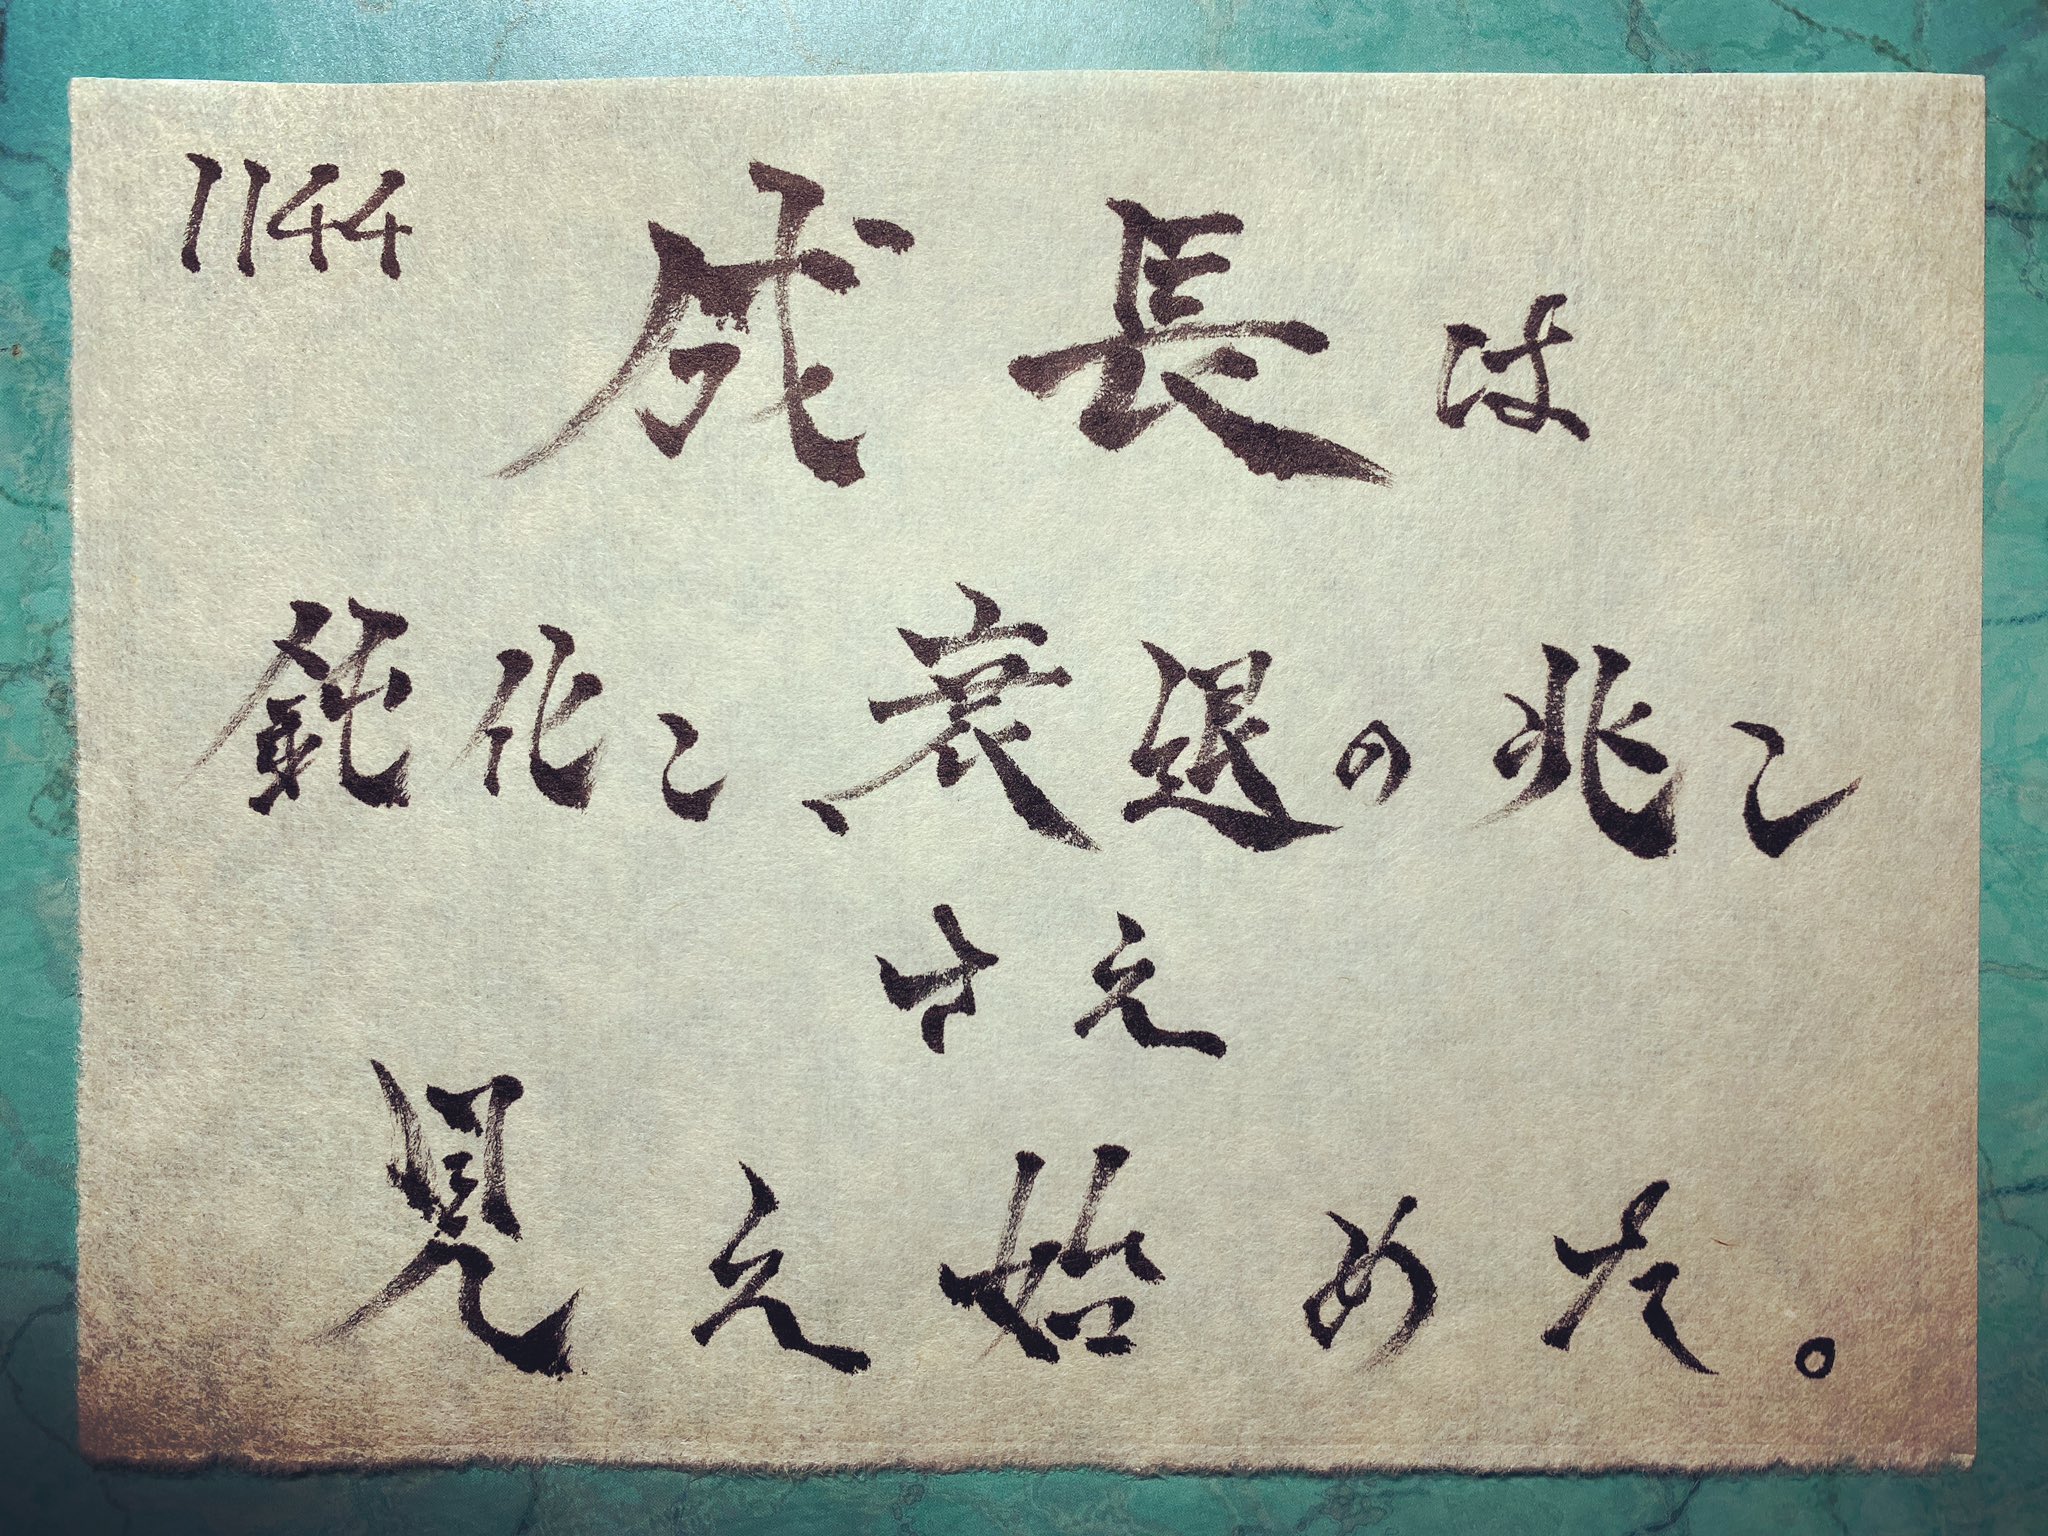 1144
成長は
鈍化し、衰退の兆し
さえ
見え始めた。